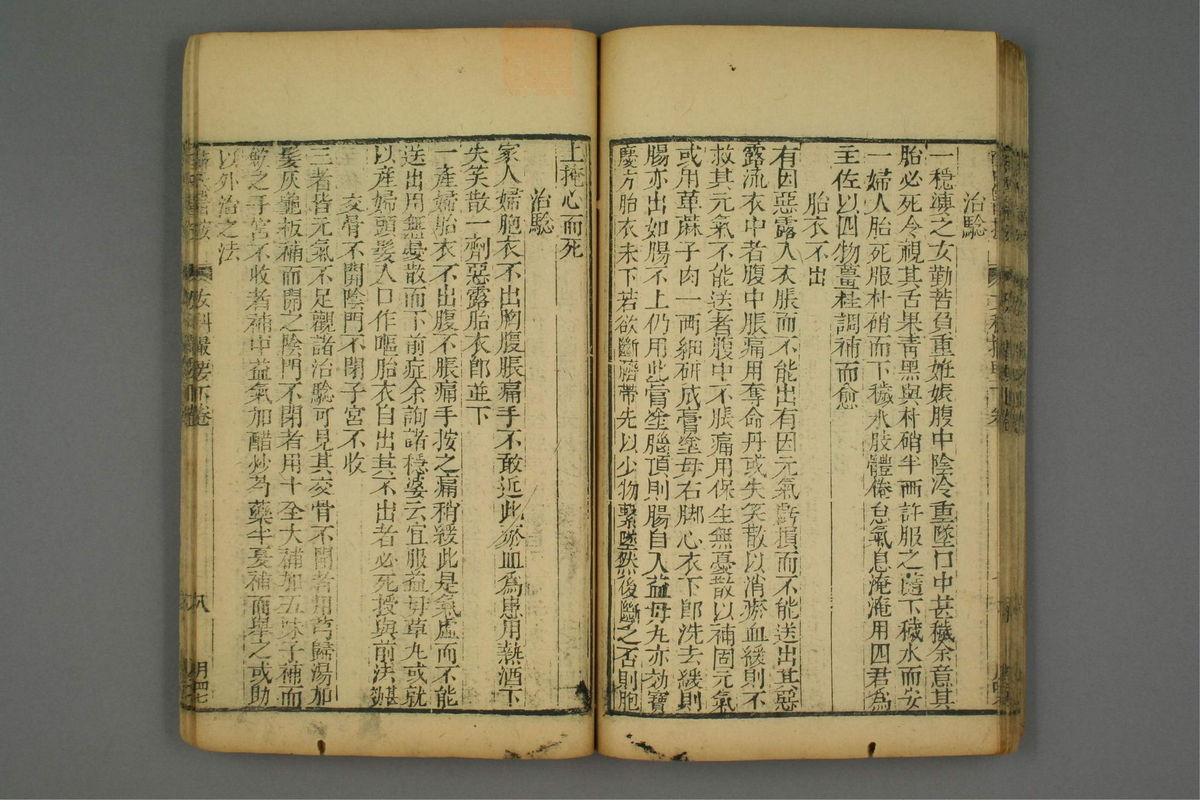 治驗
一穩凍之女勤苦負重妊娠腹中陰冷重墜口中甚穢余意其
胎必死令視其舌果青黑與朴硝半兩許服之隨下穢水而安
一婦人胎死服朴硝而下穢水肢體倦怠氣息淹淹用四君為
主佐以四物薑桂調補而愈
胎衣不出
有因惡露入衣脹而不能出有因元氣虧損而不能送出其惡
露流衣中者腹中脹痛用奪命丹或失笑散以消瘀血緩則不
救其元氣不能送者腹中不脹痛用保生無憂散以補固元氣
或用萆蔴子肉一兩細研成膏塗母右脚心衣下卽洗去緩則
腸亦出如腸不上仍用此膏塗腦頂則腸自入益母丸亦効寶
慶方胎衣未下若欲斷臍帶先以少物繫墜然後斷之否則胞
上掩心而死
治驗
家人婦胞衣不出胸腹脹痛手不敢近此瘀血為患用熱酒下
失笑散一劑惡露胎衣卽並下
一產婦胎衣不出腹不脹痛手按之痛稍緩此是氣虛而不能
送出用無憂散而下前症余詢諸穩婆云宜服益母草丸或就
以產婦頭髮入口作嘔胎衣自出其不出者必死授與前法甚
交骨不開陰門不閉子宮不收
三者皆元氣不足觀諸治驗可見其交骨不開者用芎歸湯加
髮灰龜板補而開之陰門不閉者用十全大補加五味子補而
斂之子宮不收者補中益氣加醋炒芍藥半夏補而舉之或助
以外治之法
女科撮要下卷
八